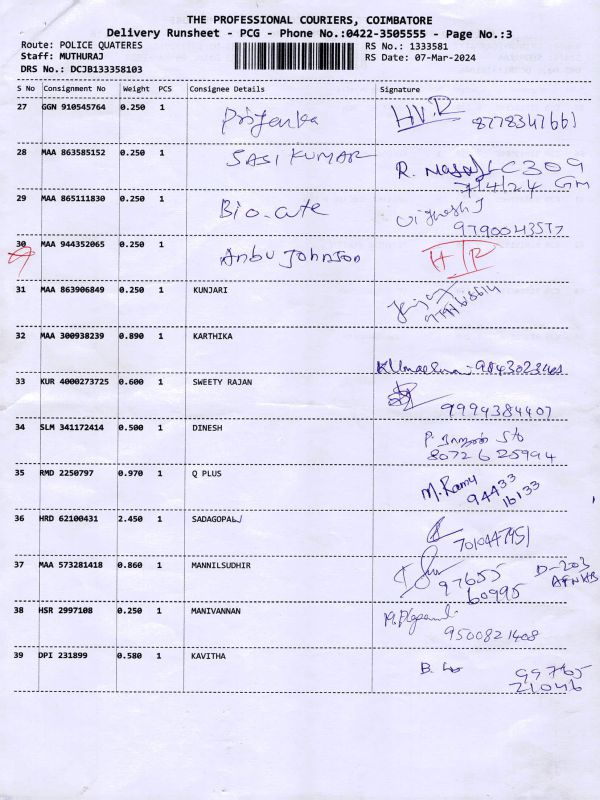 THE PROFESSIONAL COURIERS, COIMBATORE
Delivery Runsheet - PCG - Phone No.:0422-3505555 - Page No.:3
Route: POLICE QUATERES RS No.: 1333581
Staff: MUTHURAJ RS Date: 07-Mar-2024
DRS No.: DCJB133358103
S No Consignment No Weight PCS Consignee Details Signature
27 GGN 910545764 0.250 1 Priyanka HVR 8778347661
28 MAA 863585152 0.250 1 SASI KUMAR R.
7/4/24 Gm
29 MAA 865111830 0.250 1 Bio-cute Vignesh J
9790043517
30 MAA 944352065 0.250 1 Anbu Johnson
31 MAA 863906849 0.250 1 KUNJARI
32 MAA 300938239 0.890 1 KARTHIKA
33 KUR 4000273725 0.600 1 SWEETY RAJAN 9994384407
34 SLM 341172414 0.500 1 DINESH P.
8072625994
35 RMD 2250797 0.970 1 Q PLUS M.Ramu 94433
16133
36 HRD 62100431 2.450 1 SADAGOPAL
37 MAA 573281418 0.860 1 MANNILSUDHIR 97655 D-203
60995
38 HSR 2997108 0.250 1 MANIVANNAN
9500821408
39 DPI 231899 0.580 1 KAVITHA B. 99765
21046